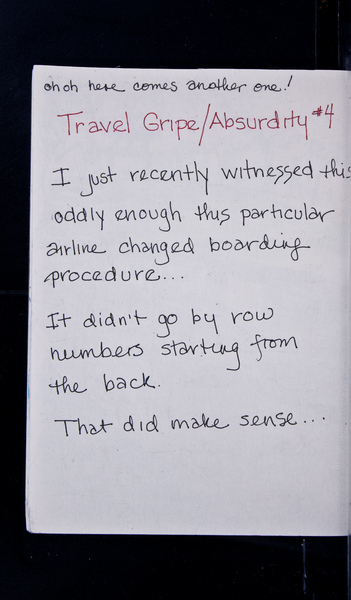 oh oh here comes another one!
Travel Gripe/Absurdity #4
I just recently witnessed this
oddly enough this particular
airline changed boarding
procedure...
It didn't go by row
numbers starting from
the back.
That did make sense...